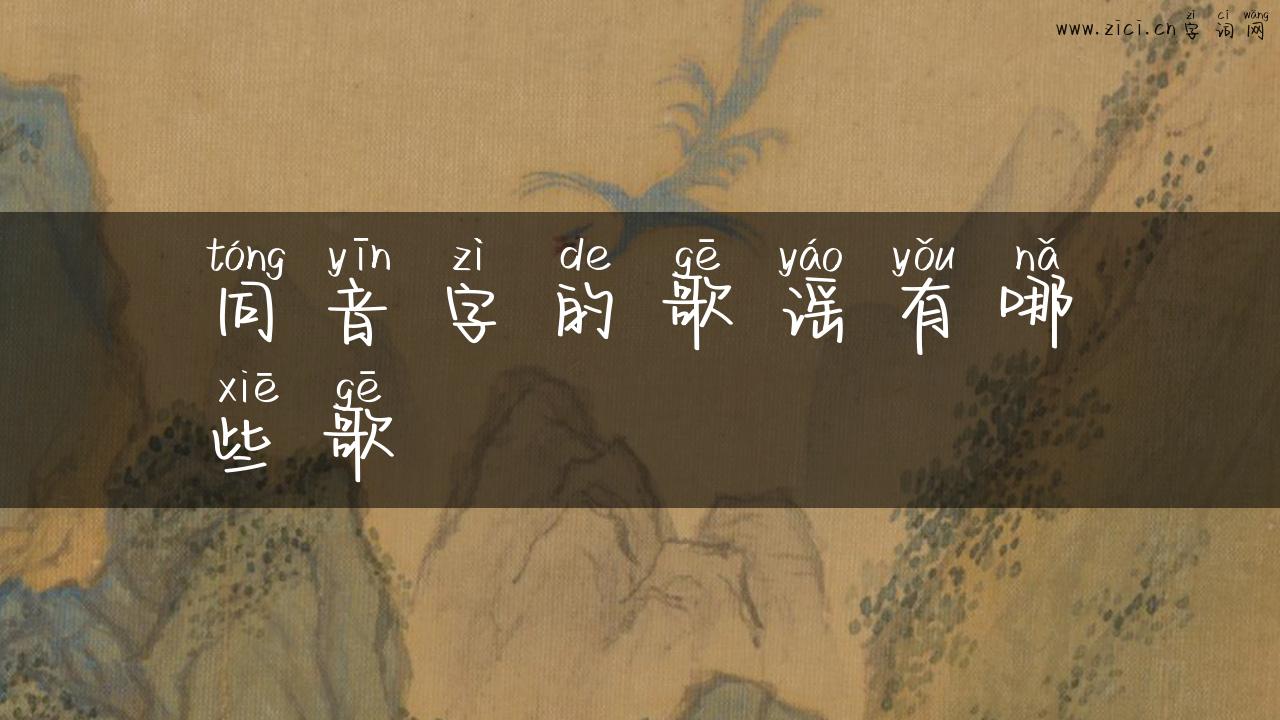 zì cí wǎng
www.zici.cn字词网
tóng yīn zì de gē yáo yǒu nǎ
同音字的歌谣有哪
xiē gē
些歌